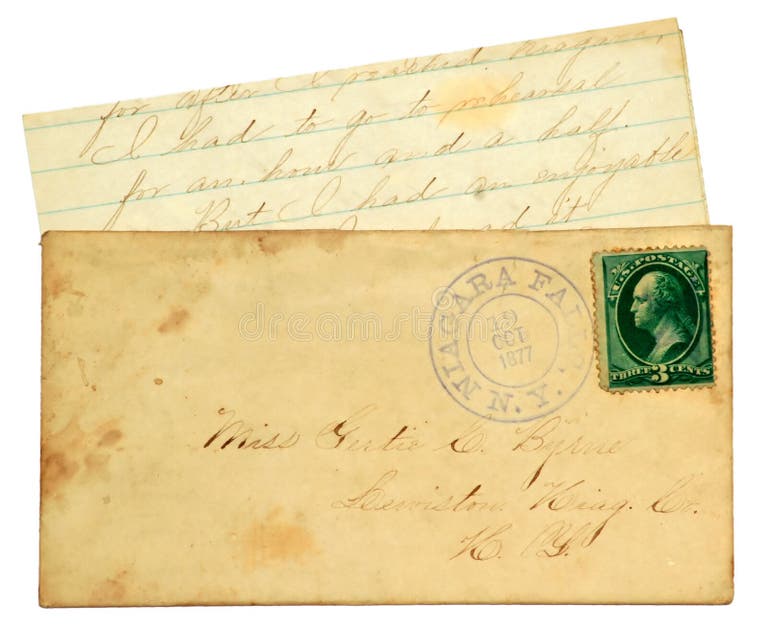 for after I reached Niagara,
I had to go to rehearsal
for an hour and a half.
But I had an enjoyable
it
U.S. POSTAGE
THREE 3 CENTS
NIAGARA FALLS. N.Y.
OCT
1877
Miss Gertie C. Byrne
Lewiston. Niag. Co.
N. Y.
dreamstime